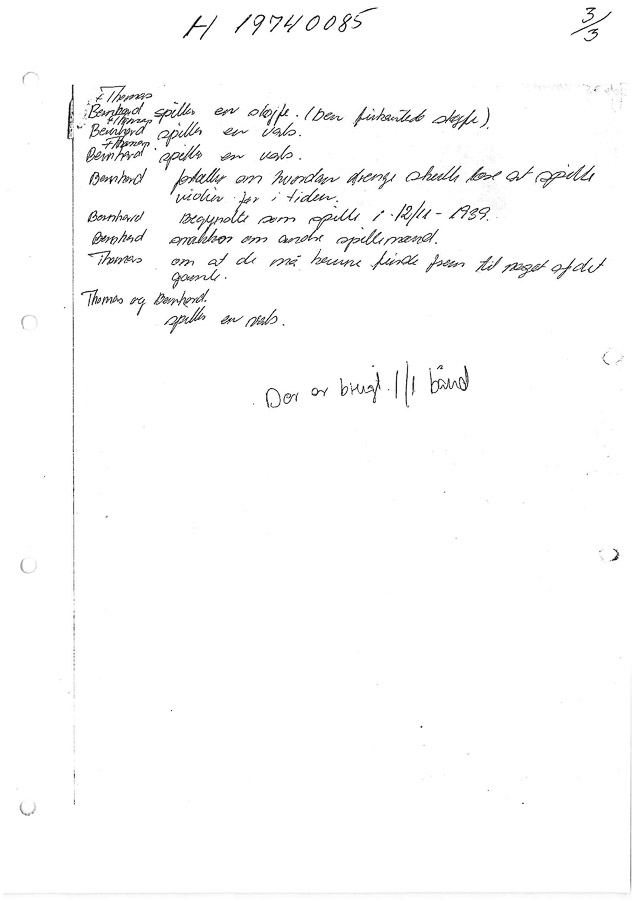 H 19740085
3/3
+ Thomas
Bernhard spiller en sløjfe. (Den firkantede sløjfe).
+ Thomas
Bernhard spiller en vals.
+ Thomas
Bernhard spiller en vals.
Bernhard fortæller om hvordan drenge skulle lære at spille
violin før i tiden.
Bernhard begyndte som spille i 12/11 - 1939.
Bernhard snakker om andre spillemænd.
Thomas om at de må kunne finde frem til noget af det
gamle.
Thomas og Bernhard.
spiller en vals.
Der er brugt 1/1 bånd